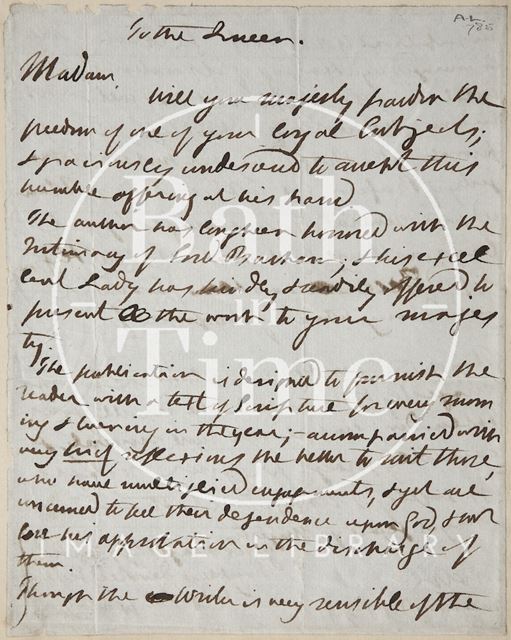 To the Queen.
A.L.
Madam
Will your majesty pardon the
freedom of one of your loyal subjects;
& graciously condescend to accept this
humble offering at his hand
The author has long been honored with the
intimacy of Lord Barham; & his excel
lent Lady has kindly & readily offered to
present the work to your majes
ty.
The publication is designed to furnish the
reader with a text of Scripture for every morn
ing & evening in the year; - accompanied with
very brief reflexions the better to suit those,
who have multiplied engagements, & yet are
concerned to feel their dependence upon God, & wel
come his approbation in the discharge of
them.
Though the Writer is very sensible of the
Bath
in
Time
IMAGE LIBRARY